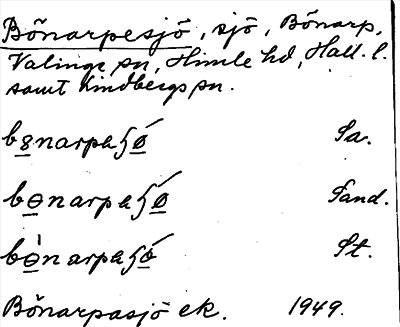 Bönarpesjö, sjö, Bönarp,
Valinge sn, Himle hd, Hall. l.
samt Lindbergs sn.
bɵnarpaʃɵ́ Sa.
bɵnarpaʃɵ́ Sand.
bɵ̀narpaʃɵ́ St.
Bönarpasjö ek. 1949.